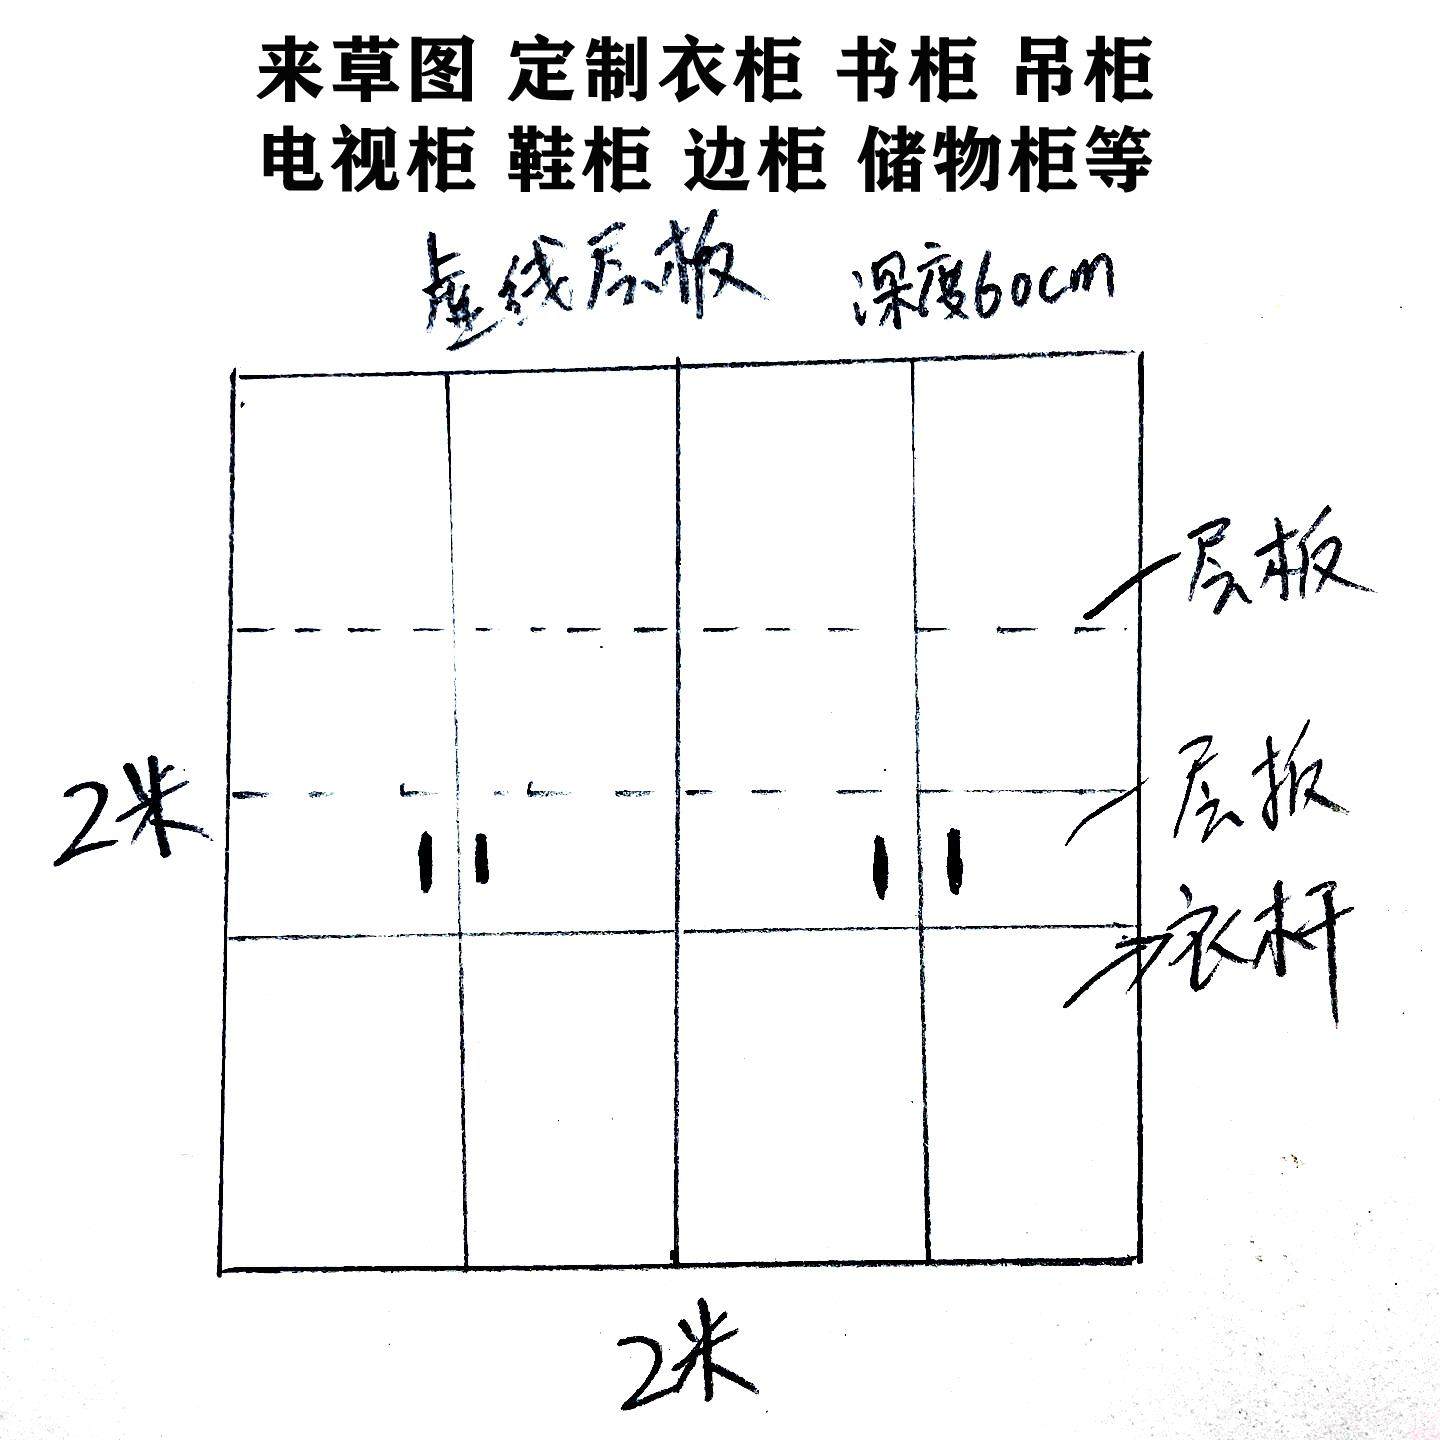 来草图 定制衣柜 书柜 吊柜
电视柜 鞋柜 边柜 储物柜等
虚线层板 深度60cm
层板
层板
2米
衣杆
2米